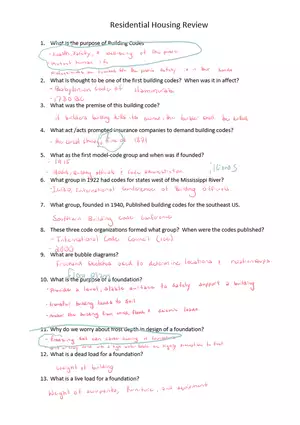 Residential Housing Review
1. What is the purpose of Building Codes
- Health, Safety, & well-being of the people
protect human life
2. What is thought to be one of the first building codes? When was it in affect?
- Babylonian Code of Hammurabi
- 1780 BC
3. What was the premise of this building code?
if builders building kills its owner, the builder shall be killed
4. What act /acts prompted insurance companies to demand building codes?
- the Great Chicago Fire of 1871
5. What as the first model-code group and when was it founded?
- 1915
6. What group in 1922 had codes for states west of the Mississippi River?
International Conference of Building Officials
7. What group, founded in 1940, Published building codes for the southeast US.
Southern Building Code Conference
8. These three code organizations formed what group? When were the codes published?
- International Code Council (ICC)
- 2000
9. What are bubble diagrams?
Freehand sketches used to determine locations & relationships
10. What is the purpose of a foundation?
- provide a level, stable surface to safely support a building
- transfer building loads to soil
- anchor the building from wind, floods & seismic loads
11. Why do we worry about frost depth in design of a foundation?
- Freezing soil can cause heaving of foundation
12. What is a dead load for a foundation?
Weight of building
13. What is a live load for a foundation?
Weight of occupants, furniture, and equipment